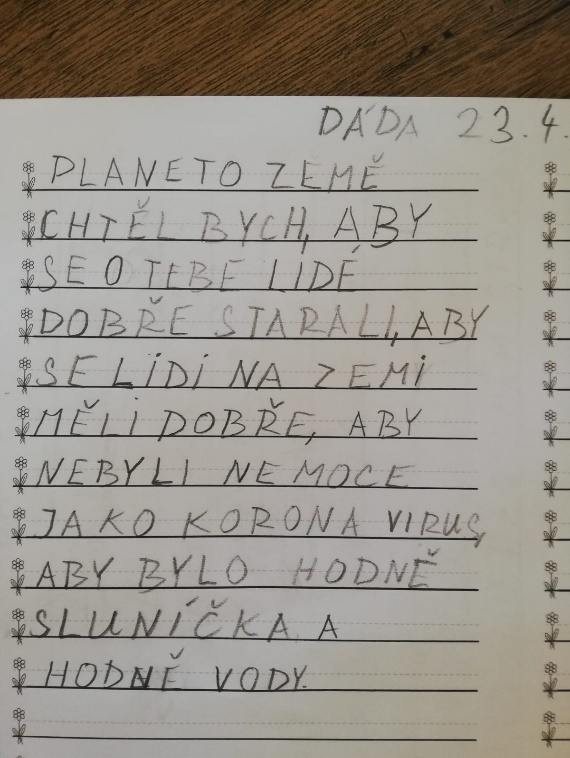 DÁDA 23.4.
PLANETO ZEMĚ
CHTĚL BYCH, ABY
SE O TEBE LIDÉ
DOBŘE STARALI, ABY
SE LIDI NA ZEMI
MĚLI DOBŘE, ABY
NEBYLI NEMOCE
JAKO KORONA VIRUS,
ABY BYLO HODNĚ
SLUNÍČKA A
HODNĚ VODY.